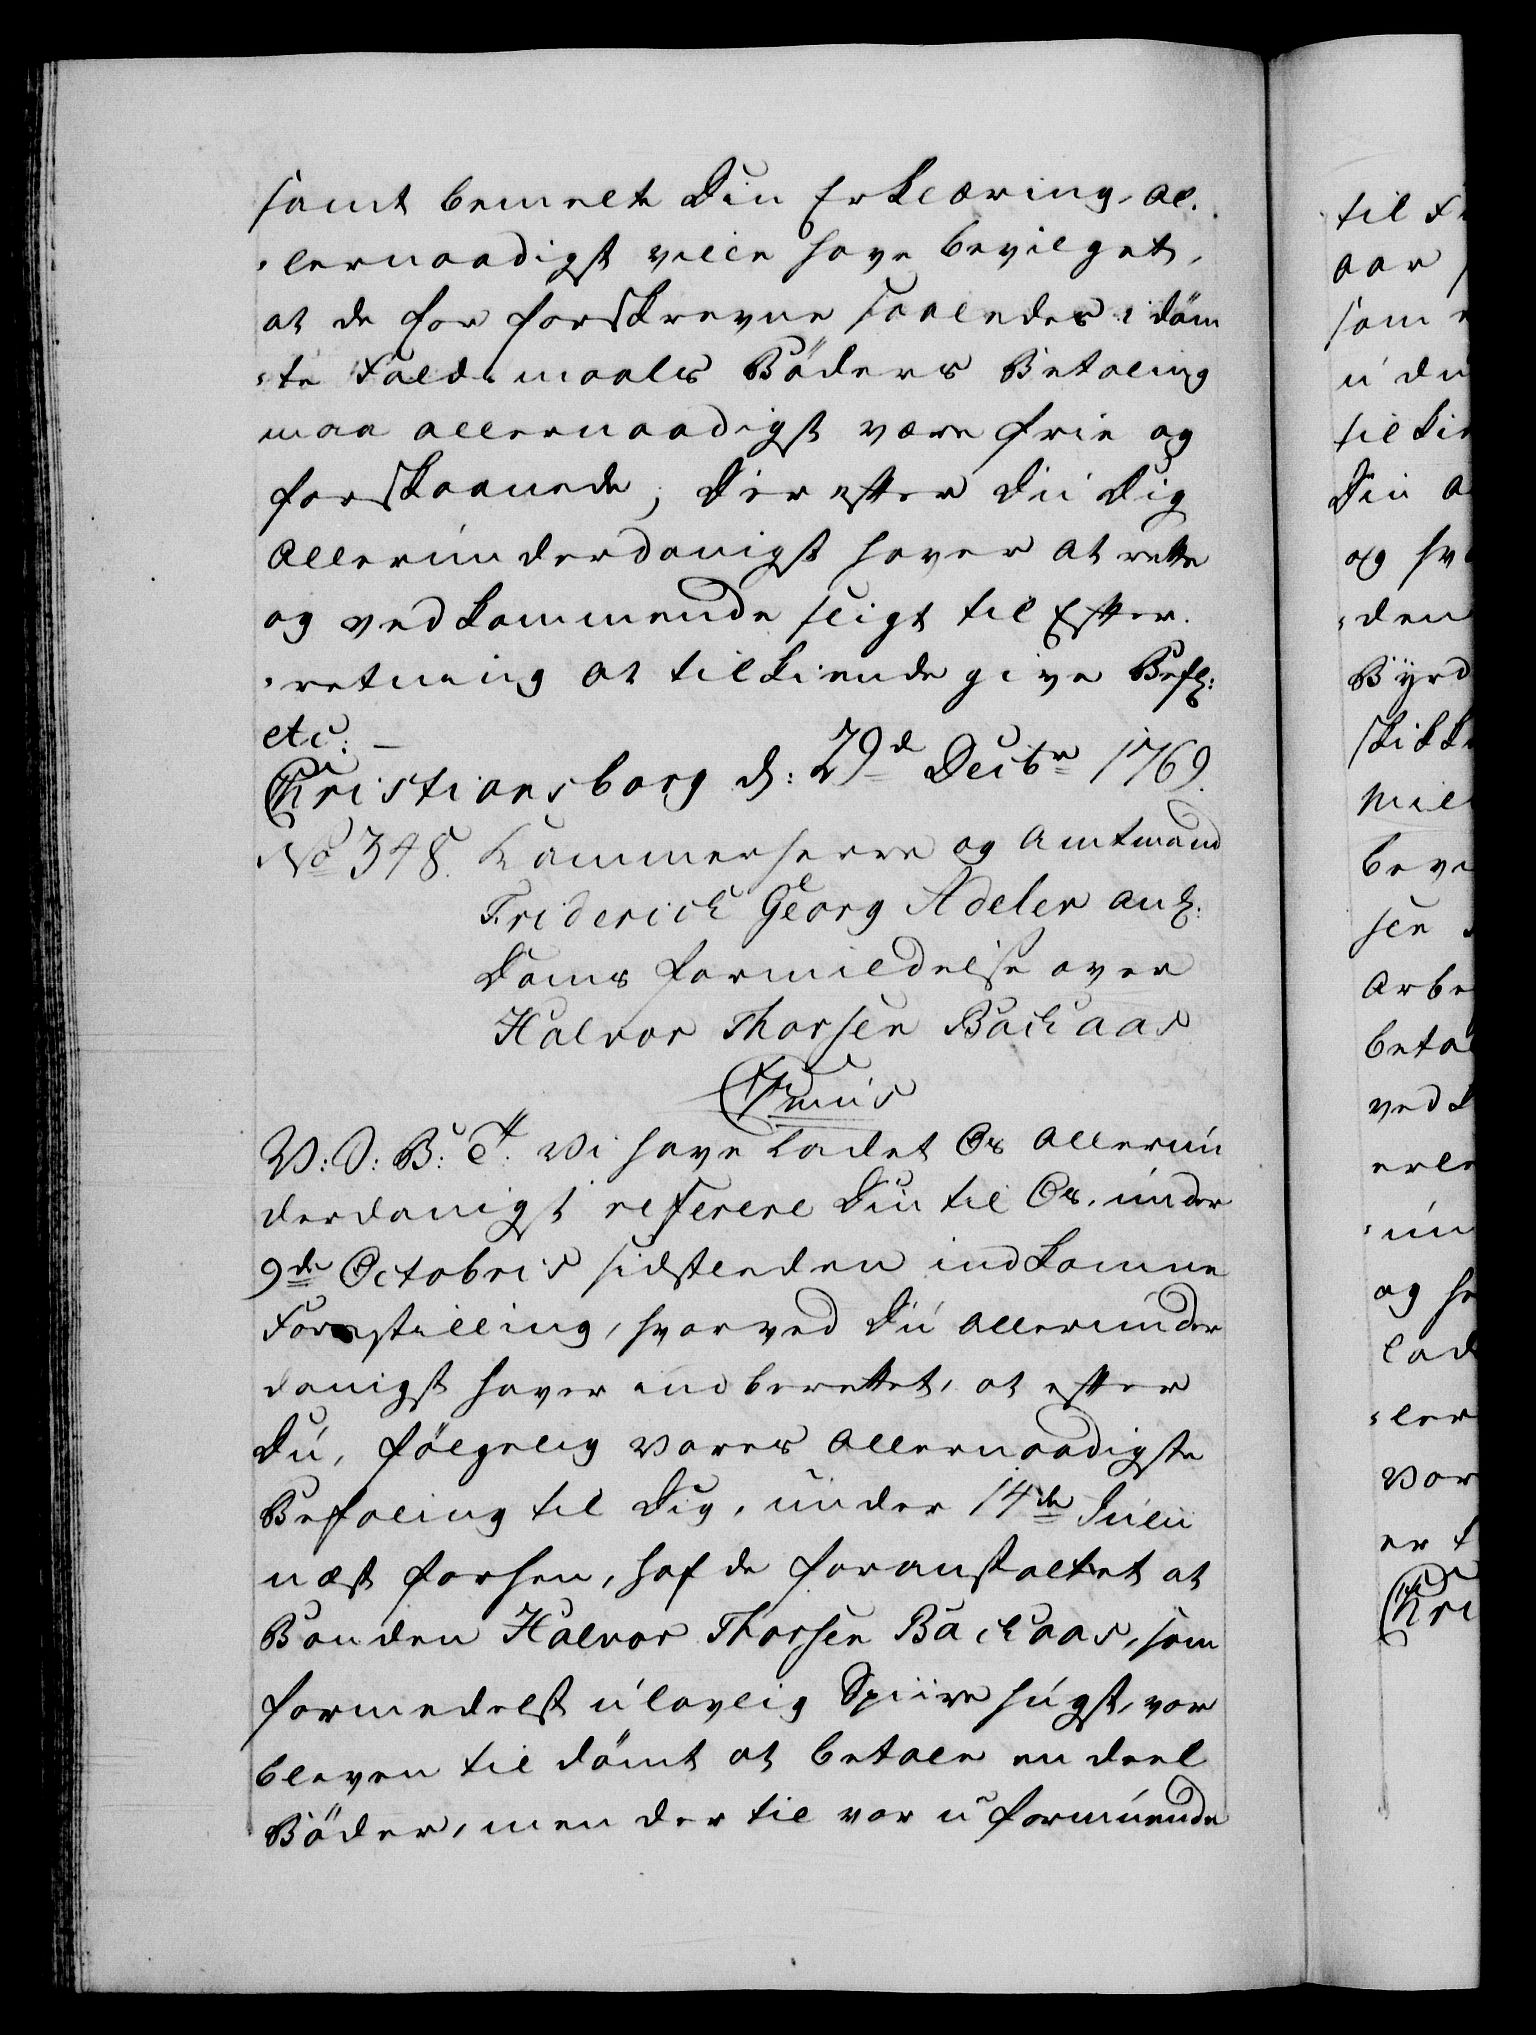 samt bemelte Din Erklæring, al-
-lernaadigst ville have bevilget,
at de for forskrevne saaledes idöm
-te Faldsmaals Böders Betaling
maa allernaadigst være frie og
forskaanede; Derefter Du Dig
allerunderdanigst haver at rette
og vedkommende sligt til Efter-
-retning at tilkiendegive Befh:
etc: —
Christiansborg d: 29de Decbr 1769.
No 348. Kammerherre og Amtmand
Friderich Georg Adeler anl:
Doms formildelse over
Halvor Thorsen Backaas
Chr: VIIus
V: S: B: T: Vi have ladet Os allerun
derdanigst referere Din til Os, under
9de Octobris sidstleden indkomne
Forestilling, hvorved Du allerunder
danigst haver indberettet, at efter
Du, fölgelig Vores allernaadigste
Befaling til Dig, under 14de Julii
næst forhen, hafde foranstaltet at
Bonden Halvor Thorsen Backaas, som
formedelst ulovlig Spiirehugst, var
bleven til dömt at betale en deel
Böder, men der til var uformuende
til
aar
som
u
til
Din
og
-den